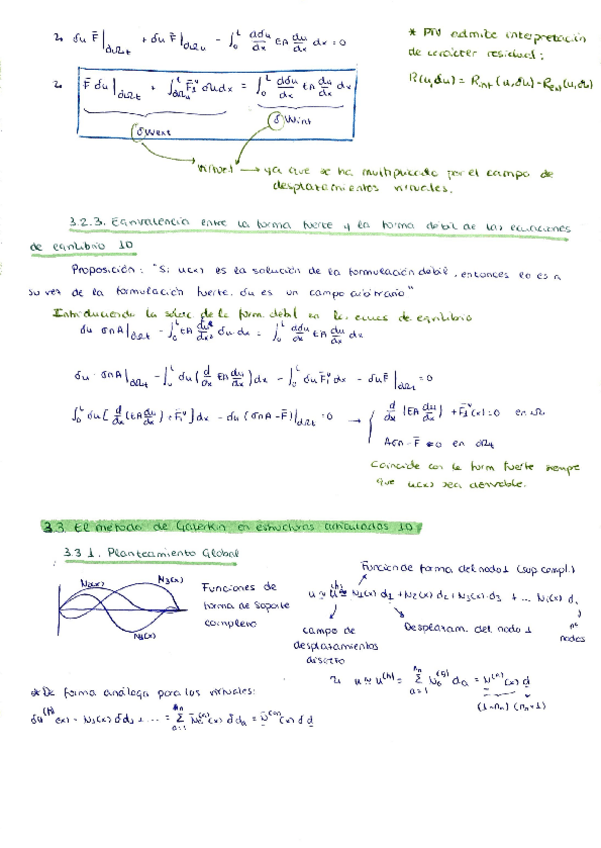 ↳ δu F̄ |∂Ωt + δu F̄ |∂Ωu - ∫₀ᴸ dδu/dx EA du/dx dx = 0
* PTV admite interpretación de carácter residual:
R(u,δu) = Rint(u,δu) - Rext(u,δu)
↳ F̄ δu |∂Ωt + ∫ F̄₁ᵛ δu dx = ∫₀ᴸ dδu/dx EA du/dx dx
δWext
δWint
virtual → ya que se ha multiplicado por el campo de
desplazamientos virtuales.
3.2.3. Equivalencia entre la forma fuerte y la forma débil de las ecuaciones
de equilibrio 1D
Proposición: "Si u(x) es la solución de la formulación débil, entonces lo es a
su vez de la formulación fuerte. δu es un campo arbitrario"
Introduciendo la soluc de la form. débil en las ecuacs de equilibrio
δu σnA |∂Ωt - ∫₀ᴸ EA δu dx = ∫₀ᴸ dδu/dx EA du/dx
δu · σnA |∂Ωt - ∫₀ᴸ δu (d/dx EA du/dx) dx - ∫₀ᴸ δu F̄₁ᵛ dx - δu F̄ |∂Ωt = 0
∫₀ᴸ δu [d/dx (EA du/dx) + F̄₁ᵛ] dx - δu (σnA - F̄) |∂Ωt = 0 → { d/dx (EA du/dx) + F̄₁ᵛ(x) = 0 en Ω
Aσn - F̄ = 0 en ∂Ωt
Coincide con la form fuerte siempre
que u(x) sea derivable.
3.3. El método de Galerkin en estructuras articuladas 1D
3.3.1. Planteamiento Global
Función de forma del nodo 1 (sop compl.)
N₂(x)
N₁(x)
N₃(x)
Funciones de
forma de soporte
completo
u ≈ u⁽ʰ⁾ = N₁(x) d₁ + N₂(x) d₂ + N₃(x) · d₃ + ... Nᵢ(x) dᵢ
campo de
desplazamientos
discreto
Desplazam. del nodo 1
nº
nodes
↳ u ≈ u⁽ʰ⁾ = Σ Nₐ⁽ᵍ⁾ dₐ = N⁽ᵍ⁾(x) d
(1×nn) (nn×1)
* De forma análoga para los virtuales:
δu⁽ʰ⁾(x) = N₁(x) δd₁ + ... = Σ Nₐ⁽ᵍ⁾(x) δdₐ = N⁽ᵍ⁾(x) δd